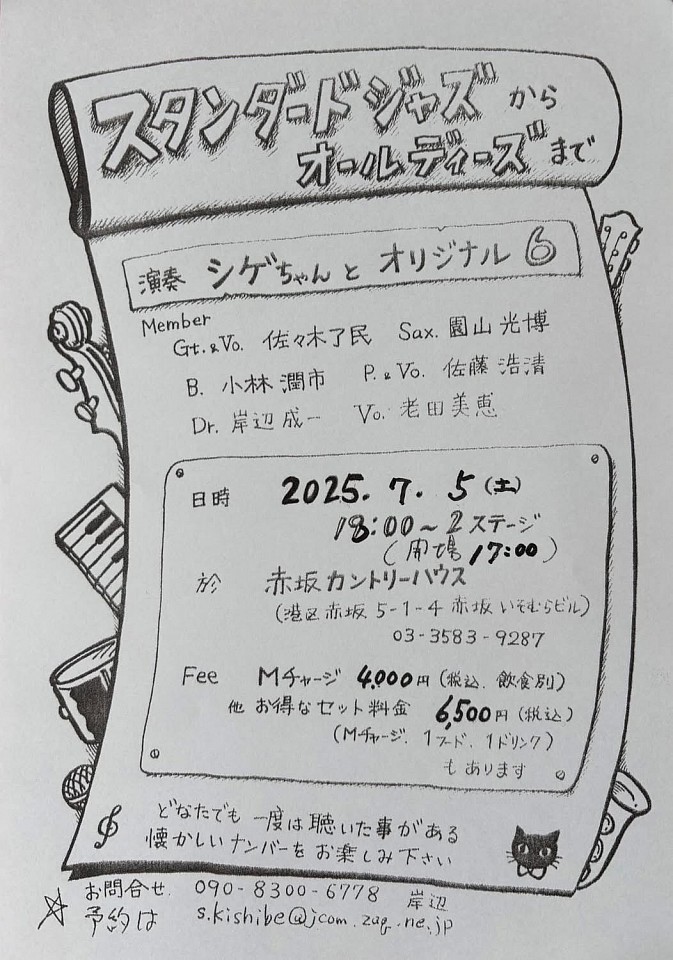 スタンダードジャズから
オールディーズまで
演奏 シゲちゃんと オリジナル 6
Member
Gt.&Vo. 佐々木了民 Sax. 園山光博
B. 小林潤市 P.&Vo. 佐藤浩清
Dr. 岸辺成一 Vo. 老田美恵
日時 2025. 7. 5 (土)
18:00~2ステージ
(開場 17:00)
於 赤坂カントリーハウス
(港区赤坂 5-1-4 赤坂いそむらビル)
03-3583-9287
Fee Mチャージ 4,000円 (税込、飲食別)
他 お得なセット料金 6,500円 (税込)
(Mチャージ、1フード、1ドリンク)
もあります
どなたでも 一度は聴いた事がある
懐かしいナンバーをお楽しみ下さい
お問合せ 090-8300-6778 岸辺
予約は s.kishibe@jcom.zaq.ne.jp